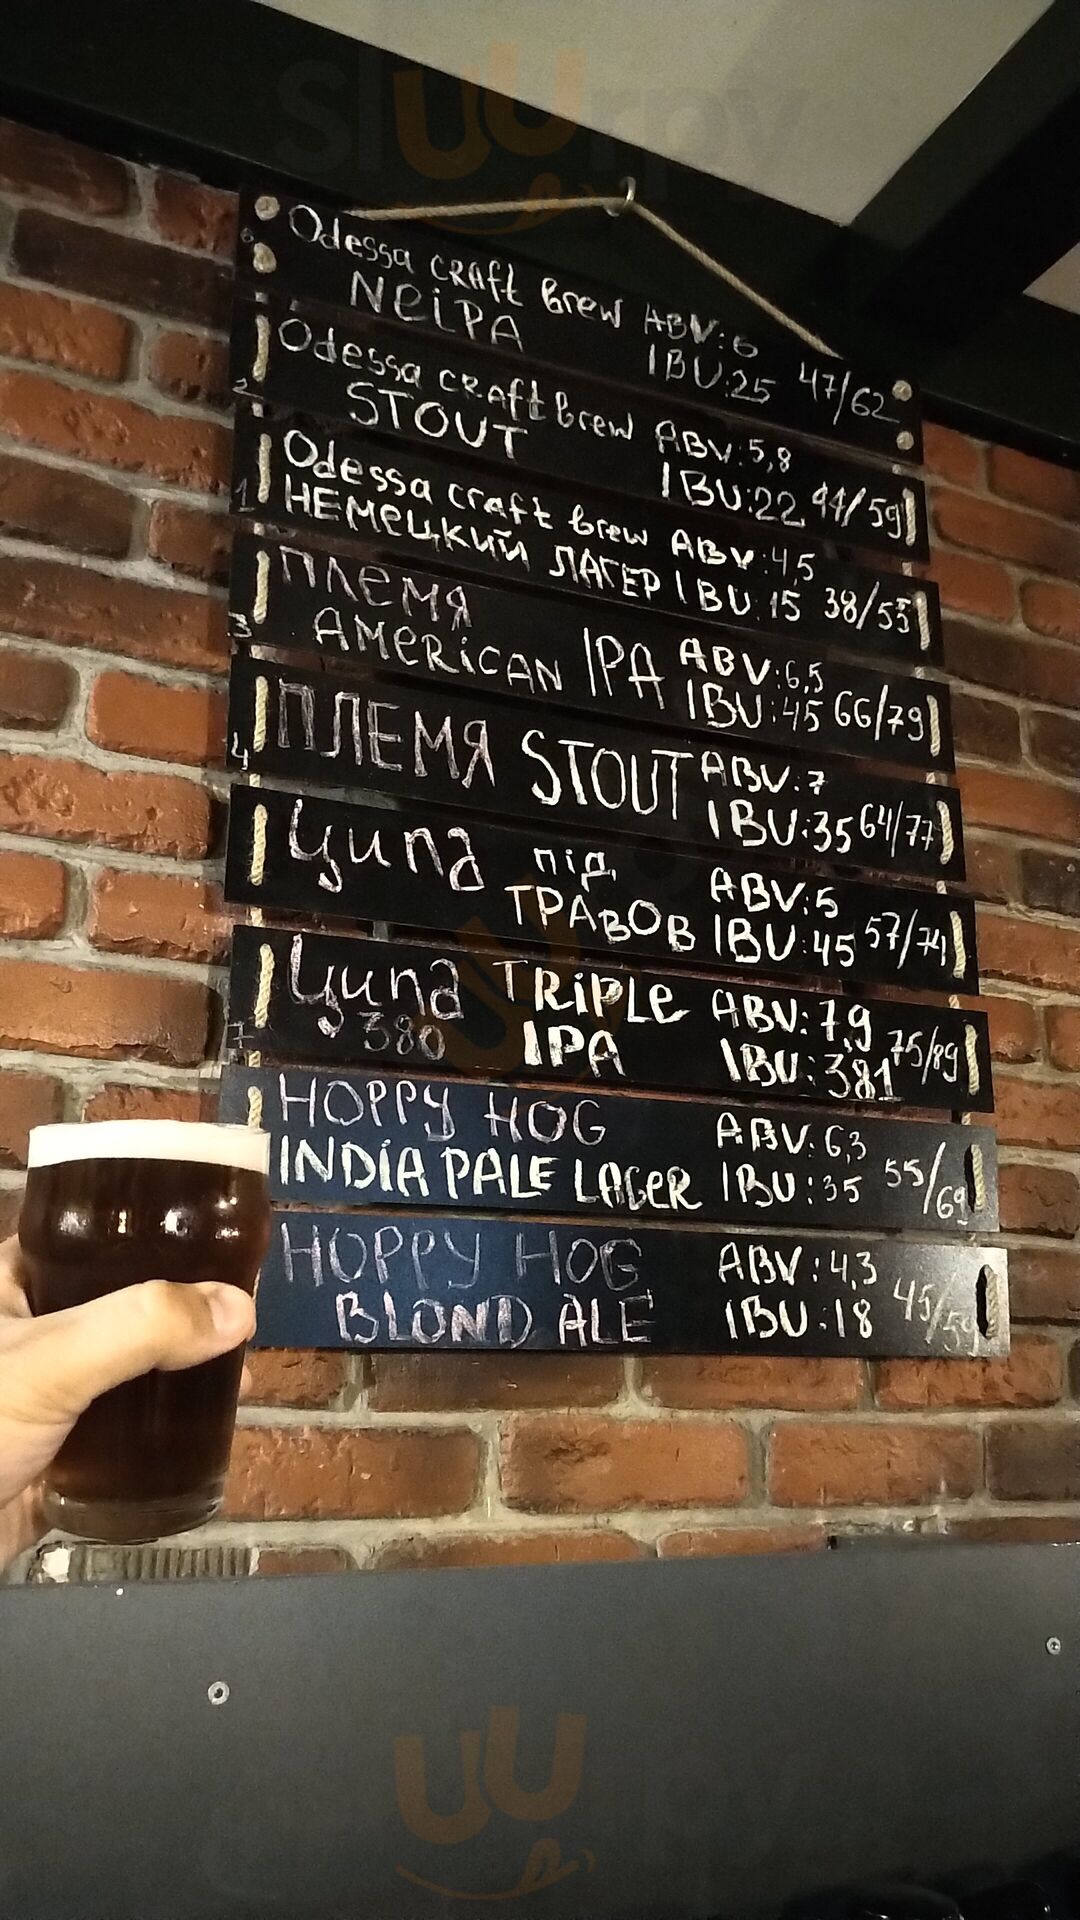 sluurpy
Odessa craft brew ABV:6
NEIPA IBU:25 47/62
6
Odessa craft brew ABV:5,8
STOUT IBU:22 44/59
2
Odessa craft brew ABV:4,5
НЕМЕЦКИЙ ЛАГЕР IBU:15 38/55
1
ПЛЕМЯ ABV:6,5
AMERICAN IPA IBU:45 66/79
3
ПЛЕМЯ STOUT ABV:7
IBU:35 64/77
4
Ципа під ABV:5
ТРАВОВ IBU:45 57/74
Ципа TRIPLE ABV:7,9
380 IPA IBU:381 75/89
7
HOPPY HOG ABV:6,3
INDIA PALE LAGER IBU:35 55/69
HOPPY HOG ABV:4,3
BLOND ALE IBU:18 45/59